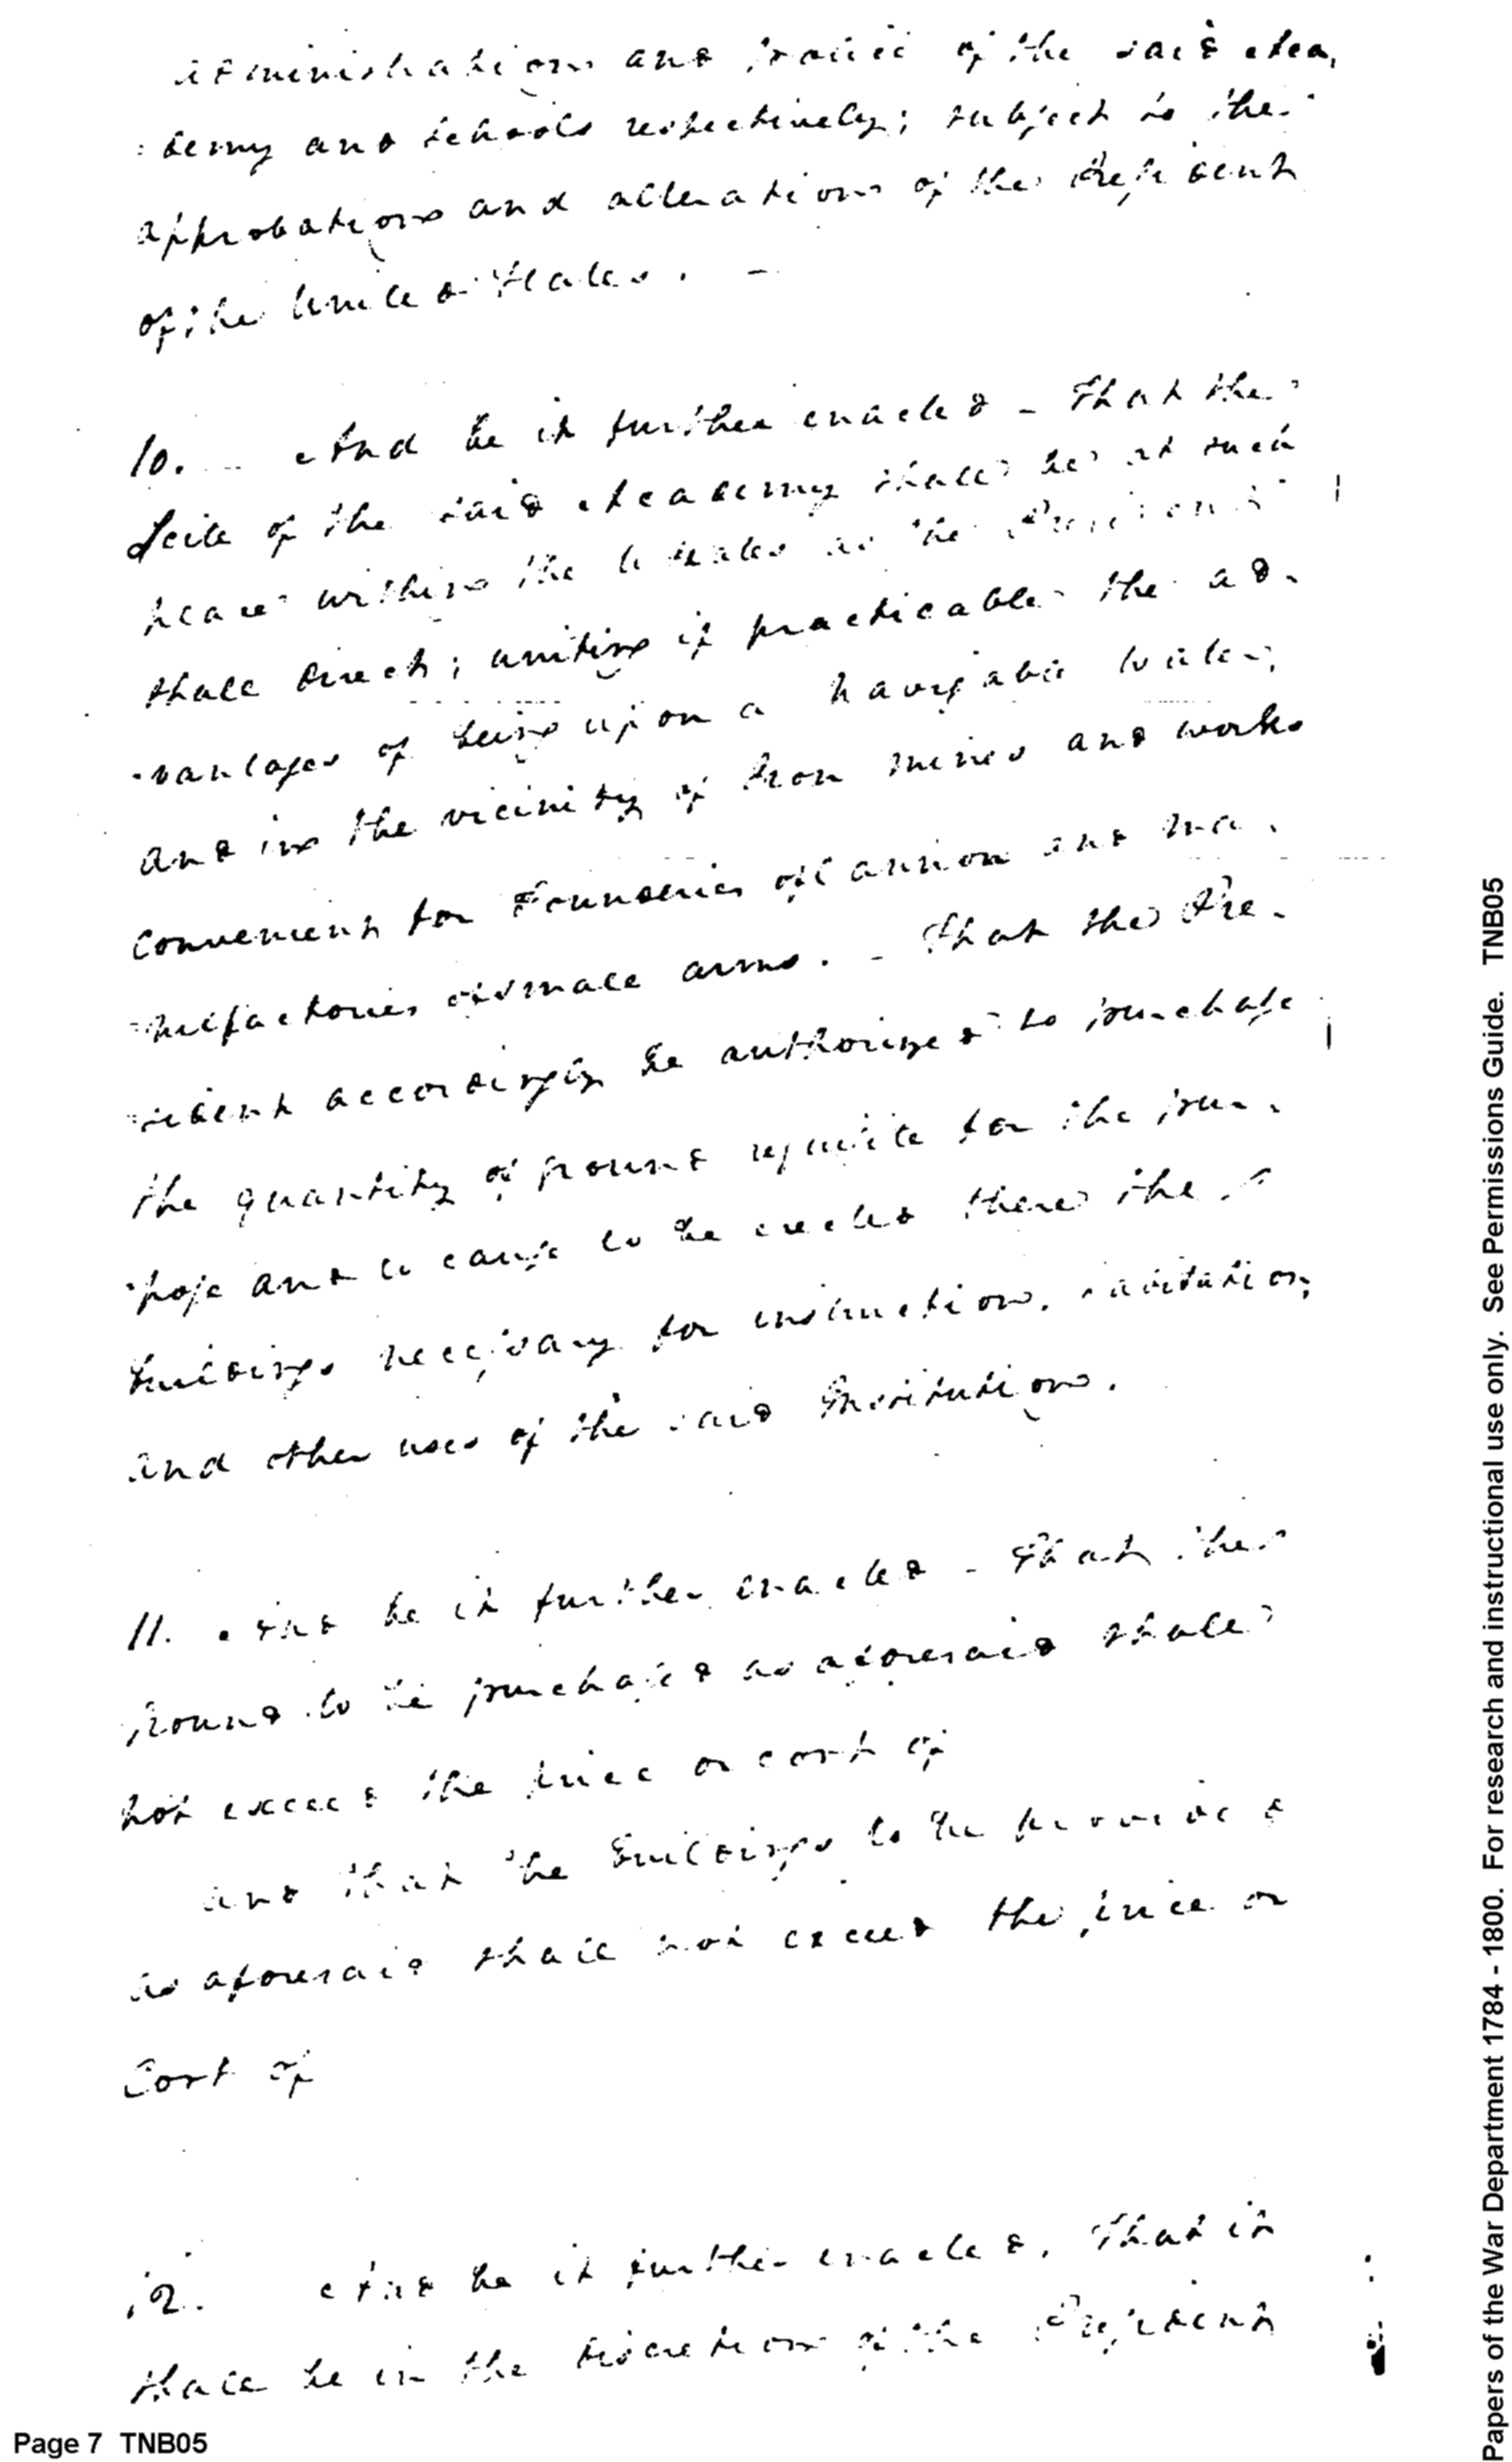 administration and police of the said Aca,
:demy and schools respectively; subject to the
approbation and alteration of the President
of the United States. –
10. – And be it further enacted – That the
Scite of the said Academy shall be at such
place within the U States as the President
shall direct; uniting if practicable the ad-
-vantages of being upon a navigable water,
and in the vicinity of Iron mines and works
convenient for Founderies of Cannon and ma-
-nufactories of small arms. – That the Pre-
-sident accordingly be authorized to purchase
the quantity of ground requisite for the pur-
-pose and to cause to be erected there the
buildings necessary for instruction, habitation,
and other uses of the said Institution.
11. And be it further enacted – That the
ground to be purchased as aforesaid shall
not exceed the price or cost of
and that the buildings to be provided
as aforesaid shall not exceed the price or
Cost of
12. And be it further enacted, That it
shall be in the discretion of the President
Page 7 TNB05
Papers of the War Department 1784 - 1800. For research and instructional use only. See Permissions Guide. TNB05